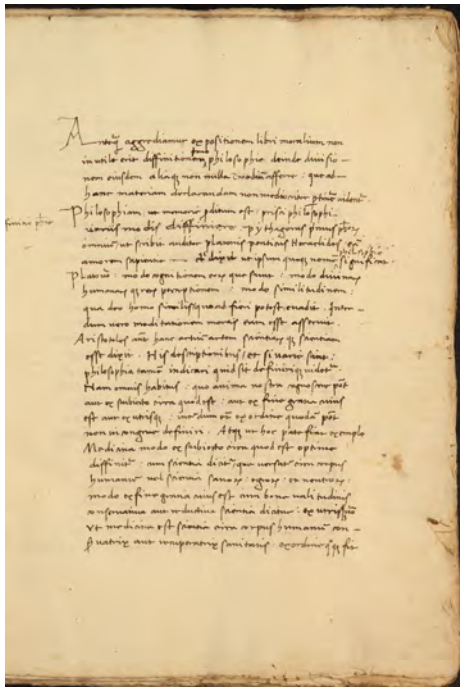 Antequam aggrediamur expositionem libri moralium non
inutile erit diffinitionem philosophie deinde divisio-
nem eiusdem aliaque non nulla in medium afferre : que ad
hanc materiam declarandam non mediocriter
Philosophiam, ut memorie proditum est : prisci philosophi
variis modis diffiniere. pythagoras primus
omnium ut scribit auditor platonis ponticus Heraclides
amorem sapientie dixit ut ipsum quoque nomen significat.
philosophie
Plato : modo cognitionem eorum que sunt : modo divinarum
humanarumque rerum perceptionem : modo similitudinem :
qua deo homo similis quoad fieri potest evadit. Inter-
dum vero meditationem mortis eam esse asseruit.
Aristoteles aut hanc artium artem
esse dixit. His descriptionibus et si variis sint :
philosophia tamen indicari quid sit definirique videtur.
Nam omnis habitus : quo anima nostra
aut ex subiecto circa quod est : aut ex fine gratia cuius
est aut ex utrisque : interdum ex ordine quodam
non incongrue definiri. Atque ut hoc patefiat exemplo
Medicina modo ex subiecto circa quod est optime
diffinitur : cum scientia dicitur que versatur circa corpus
humanum vel scientia sanorum : egrorum : et neutrorum :
modo ex fine gratia cuius est cum bone valitudinis
conservativa aut reductiva scientia dicatur : ex utrisque
ut medicina est scientia circa corpus humanum con-
servatrix aut recuperatrix sanitatis : ex ordine